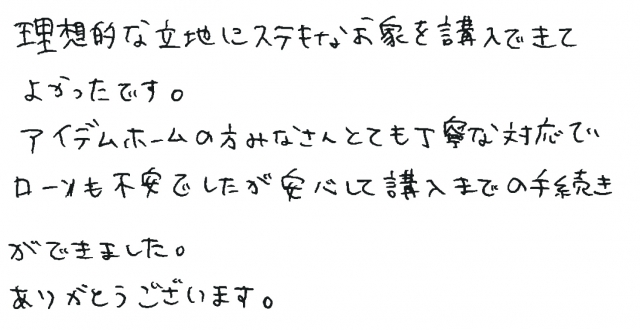 理想的な立地にステキなお家を講入できて
よかったです。
アイデムホームの方みなさんとても丁寧な対応で
ローンも不安でしたが安心して講入までの手続き
ができました。
ありがとうございます。